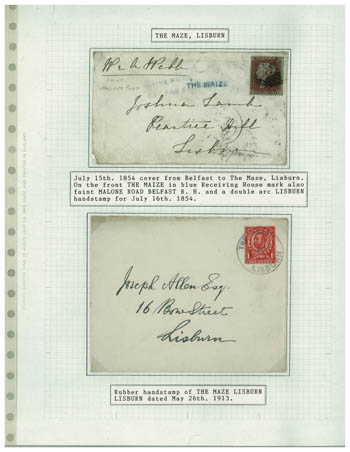 THE MAZE, LISBURN
Wm A Webb
THE MAIZE
MALONE ROAD
Joshua Lamb
Peartree Hill
Lisburn
July 15th. 1854 cover from Belfast to The Maze, Lisburn.
On the front THE MAIZE in blue Receiving House mark also
faint MALONE ROAD BELFAST R. H. and a double arc LISBURN
handstamp for July 16th. 1854.
LISBURN
Joseph Allen Esq.
16 Bow Street
Lisburn
Rubber handstamp of THE MAZE LISBURN
LISBURN dated May 26th. 1913.